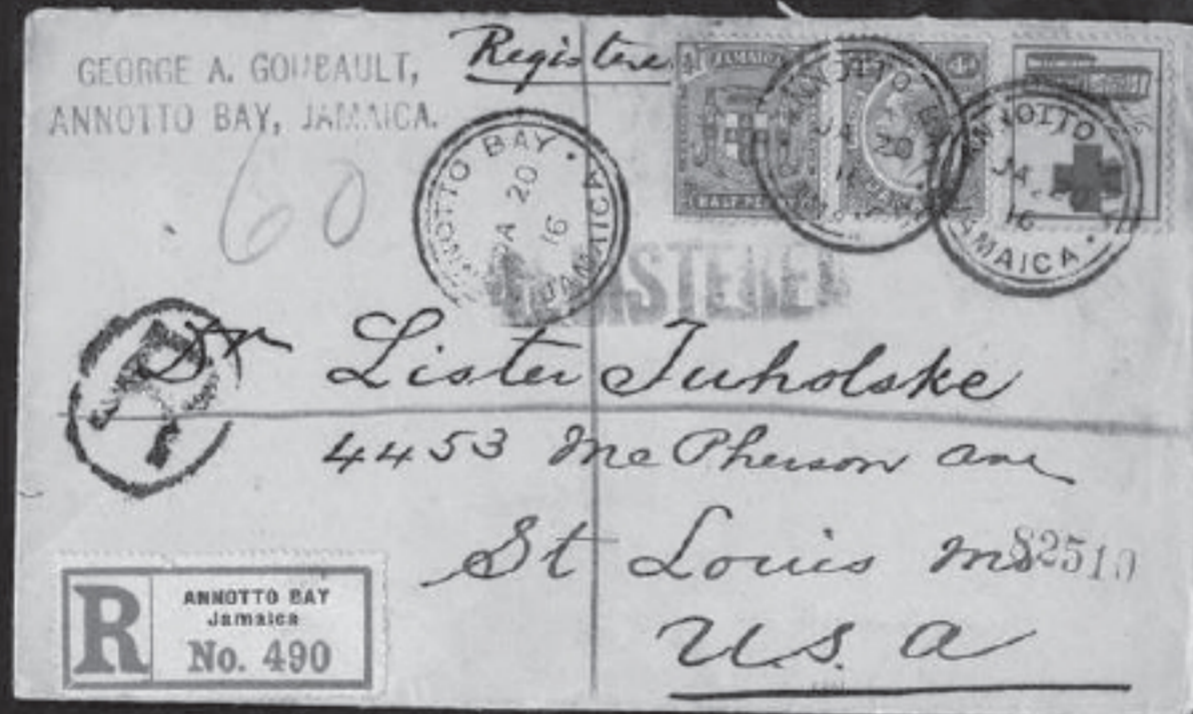 GEORGE A. GOUBAULT,
ANNOTTO BAY, JAMAICA.
Registered
60
ANNOTTO BAY
JA 20
16
JAMAICA
JAMAICA
HALF PENNY
ANNOTTO
JA 20
16
ANNOTTO
JA
16
JAMAICA
REGISTERED
R
Dr Lister Tuholske
4453 McPherson Ave
St Louis Mo
82510
U.S.A
R
ANNOTTO BAY
Jamaica
No. 490